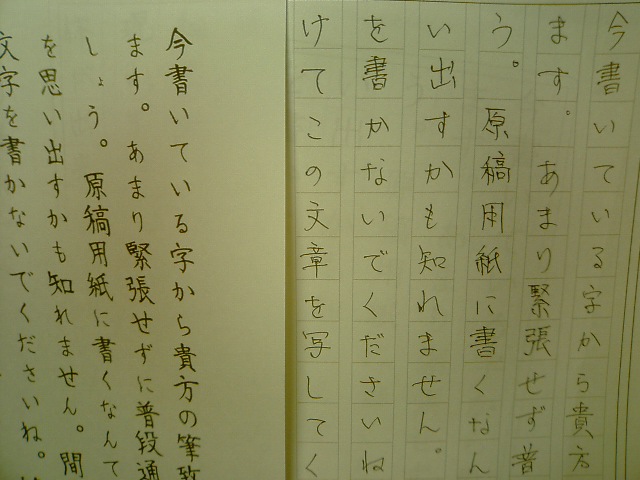 今書いている字から貴方
ます。あまり緊張せず普
う。原稿用紙に書くなん
い出すかも知れません。
を書かないでくださいね
けてこの文章を写してく
今書いている字から貴方の筆致
ます。あまり緊張せずに普段通
しょう。原稿用紙に書くなんて
を思い出すかも知れません。間
文字を書かないでくださいね。